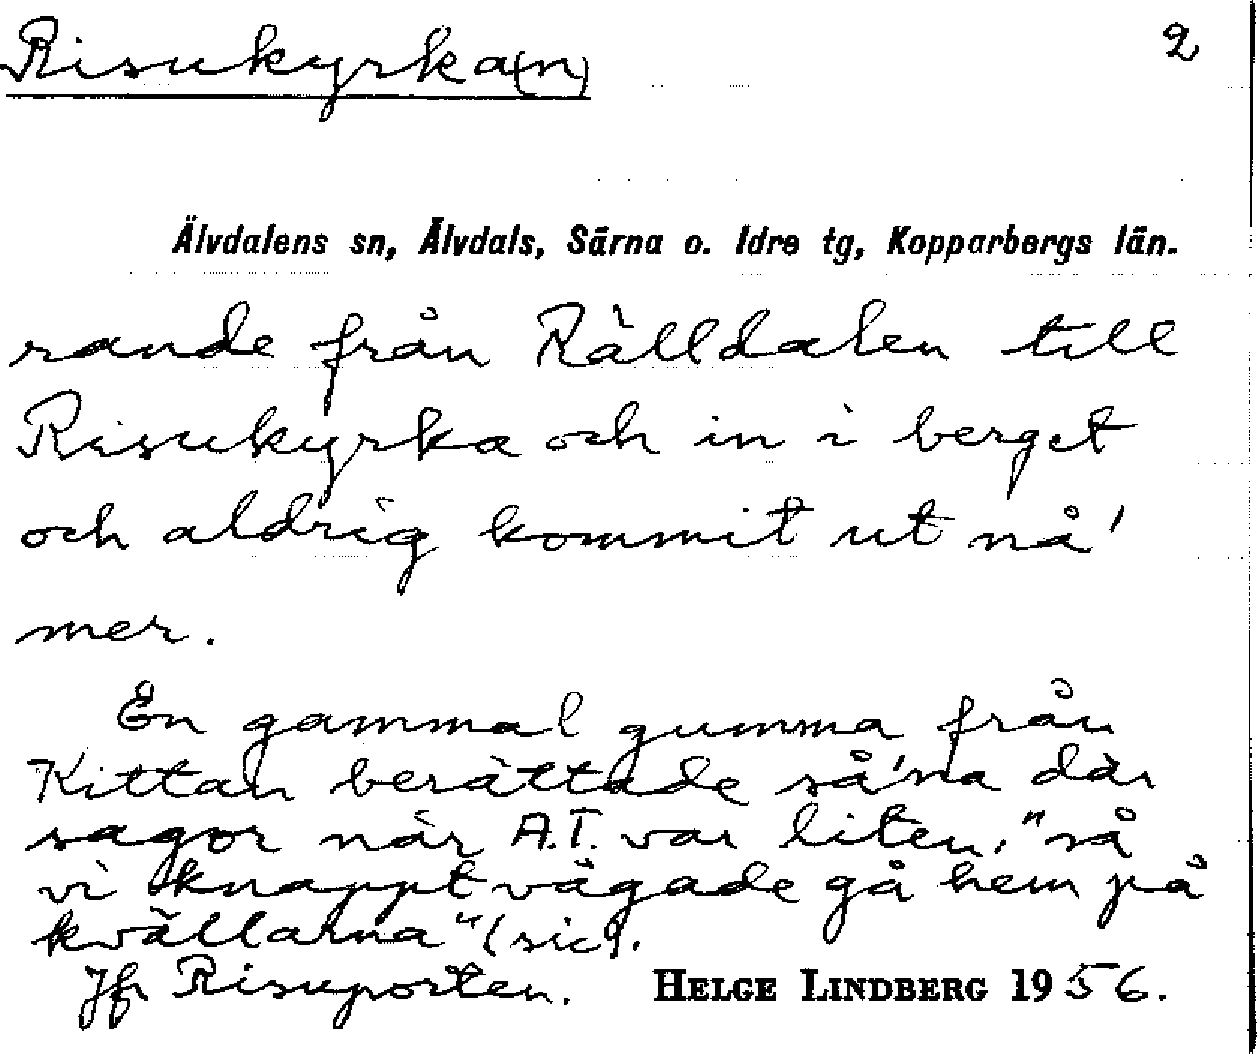 Risukyrka(n) 2
Älvdalens sn, Älvdals, Särna o. Idre tg, Kopparbergs län.
rande från Rälldalen till
Risukyrka och in i berget
och aldrig kommit ut nå'
mer.
En gammal gumma från
Kittan berättade så'na där
sagor när A.T. var liten, "så
vi knappt vågade gå hem på
kvällarna" (sic).
Jfr Risuporten. HELGE LINDBERG 1956.